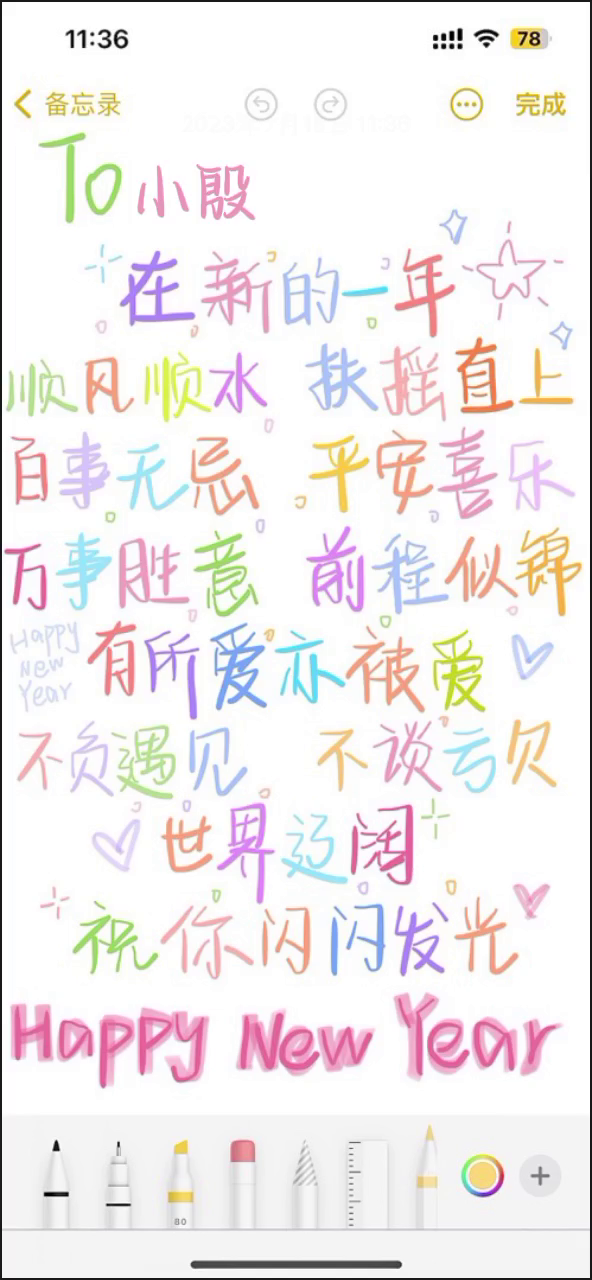 11:36
78
备忘录
完成
To 小殷
在新的一年
顺风顺水 扶摇直上
百事无忌 平安喜乐
万事胜意 前程似锦
Happy
New
Year
有所爱亦被爱
不负遇见 不谈亏欠
世界辽阔
祝你闪闪发光
Happy New Year
80